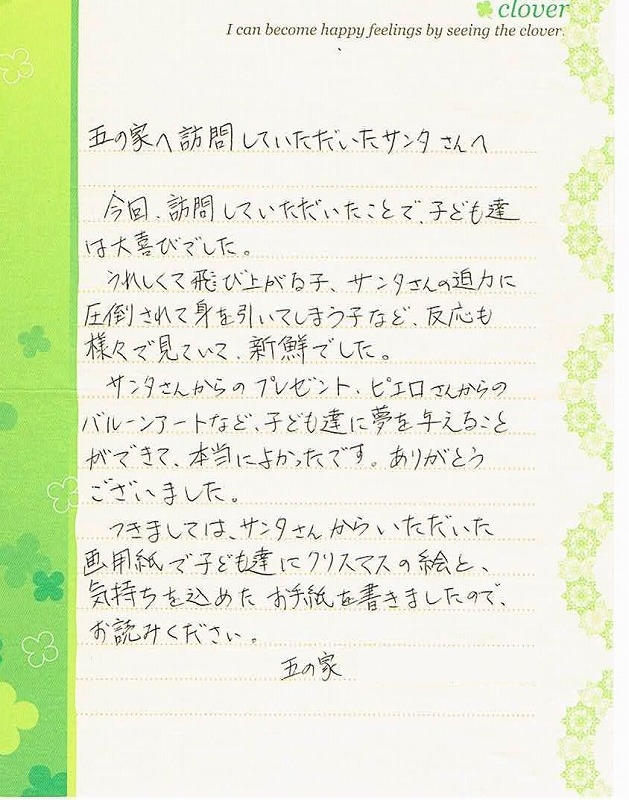 clover
I can become happy feelings by seeing the clover.
五の家へ訪問していただいたサンタさんへ
今回、訪問していただいたことで、子ども達
は大喜びでした。
うれしくて飛び上がる子、サンタさんの迫力に
圧倒されて身を引いてしまう子など、反応も
様々で見ていて、新鮮でした。
サンタさんからのプレゼント、ピエロさんからの
バルーンアートなど、子ども達に夢を与えること
ができて、本当によかったです。ありがとう
ございました。
つきましては、サンタさんからいただいた
画用紙で子ども達にクリスマスの絵と、
気持ちを込めたお手紙を書きましたので、
お読みください。
五の家